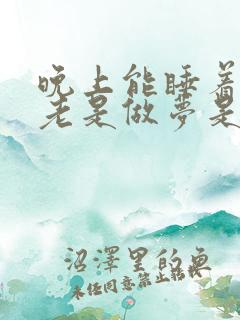 晚上能睡着
老是做梦是
沼澤里的魚
未经同意禁止转载